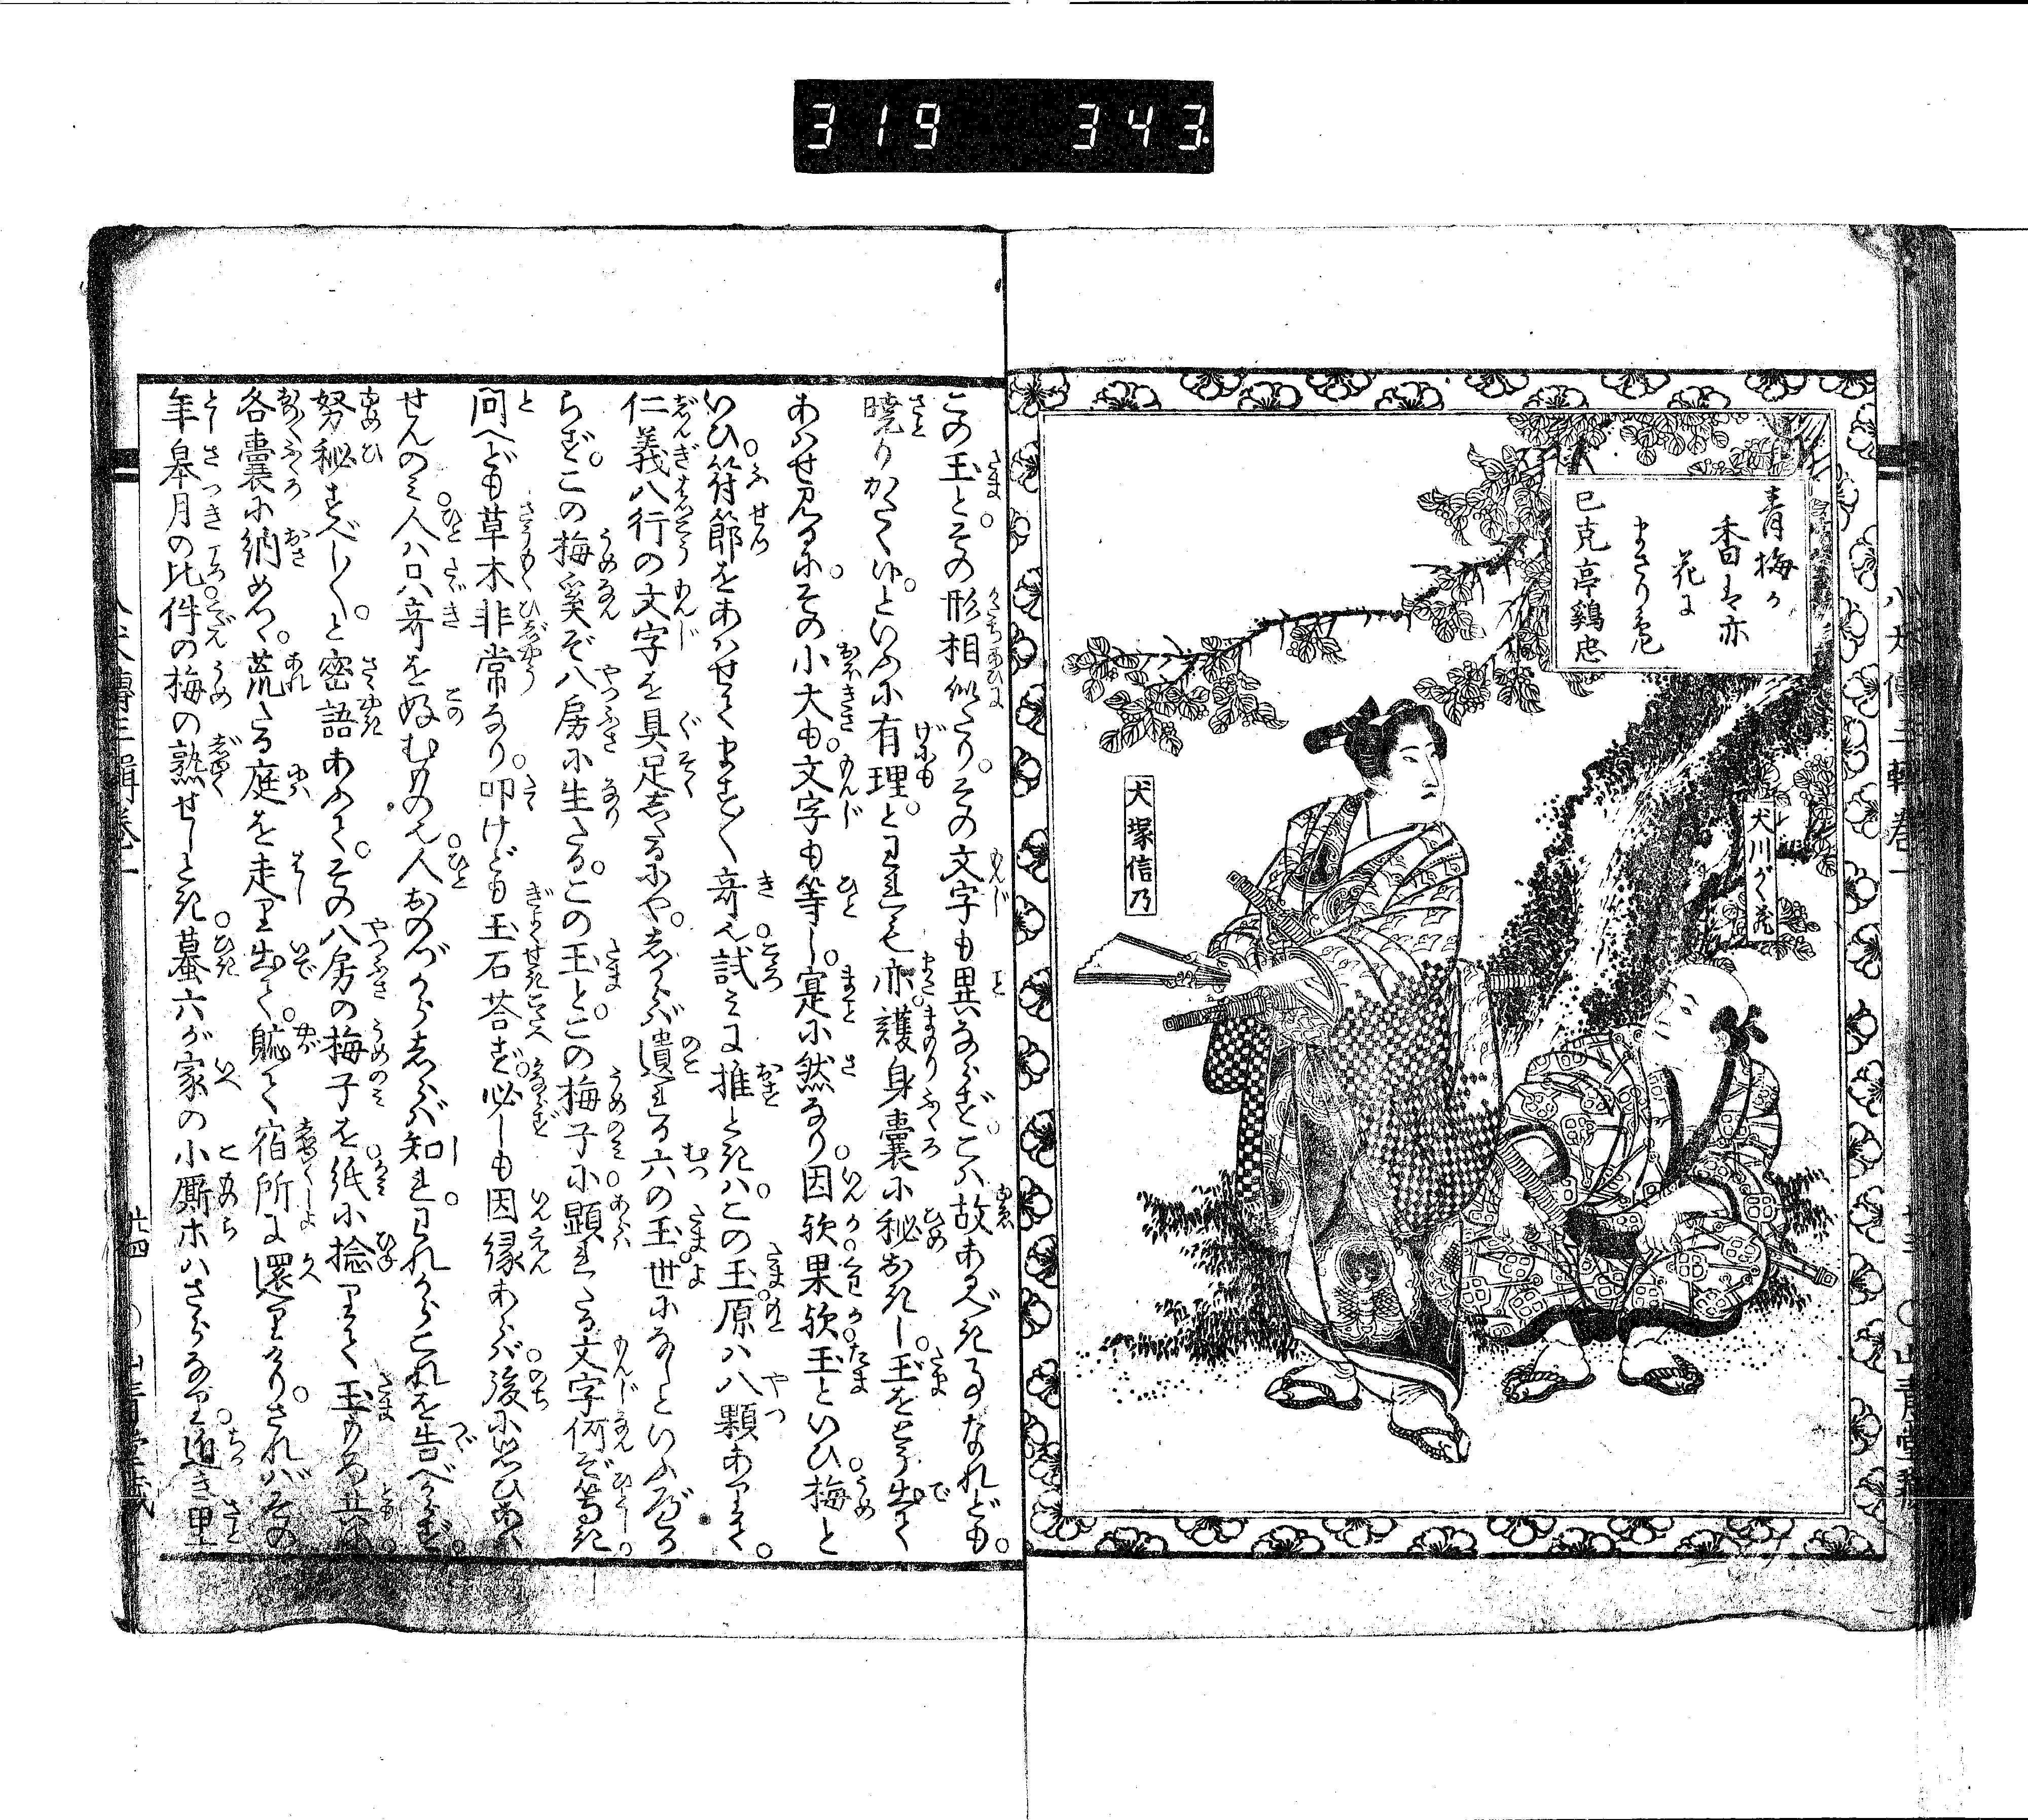 319 343
青梅が
香は亦
花に
まさりけり
巳克亭鷄忠
犬塚信乃
犬川がく蔵
この玉とその形相似たり。その文字も異ならず。こは故あるべき事なれども。
暁りがたく侍。といふに有理。とわれも亦護身嚢に秘おきし。玉をとう出て
あはせ見るに。その小大も。文字も等し。寔に然なり。因欤果欤玉といひ梅と
いひ。符節をあはせてますます奇也。試みに推ときは。この玉原は八顆ありて。
仁義八行の文字を具足したるにや。しからば遺れる六の玉。世になしといふべか
らず。この梅奚ぞ八房に生たる。この玉と。この梅子に顕れたる文字何ぞ等き。
問へども草木非常なり。叩けども玉石荅ず。必しも因縁あらば後に思ひあは
せんのみ。人只奇を好むもの也。人おのづからしらば知れ。われからこれを告べからず。
努秘すべし〳〵。と密語あふて。その八房の梅子を紙に捻りて玉もろ共に。
各嚢に納めつ。荒たる庭を走り出て。軈て宿所に還りけり。さればその
年皐月の比件の梅の熟せしとき。蟇六が家の小厮ホはさらなり。近き里
八犬傳三輯巻一
廿四
山青堂藏